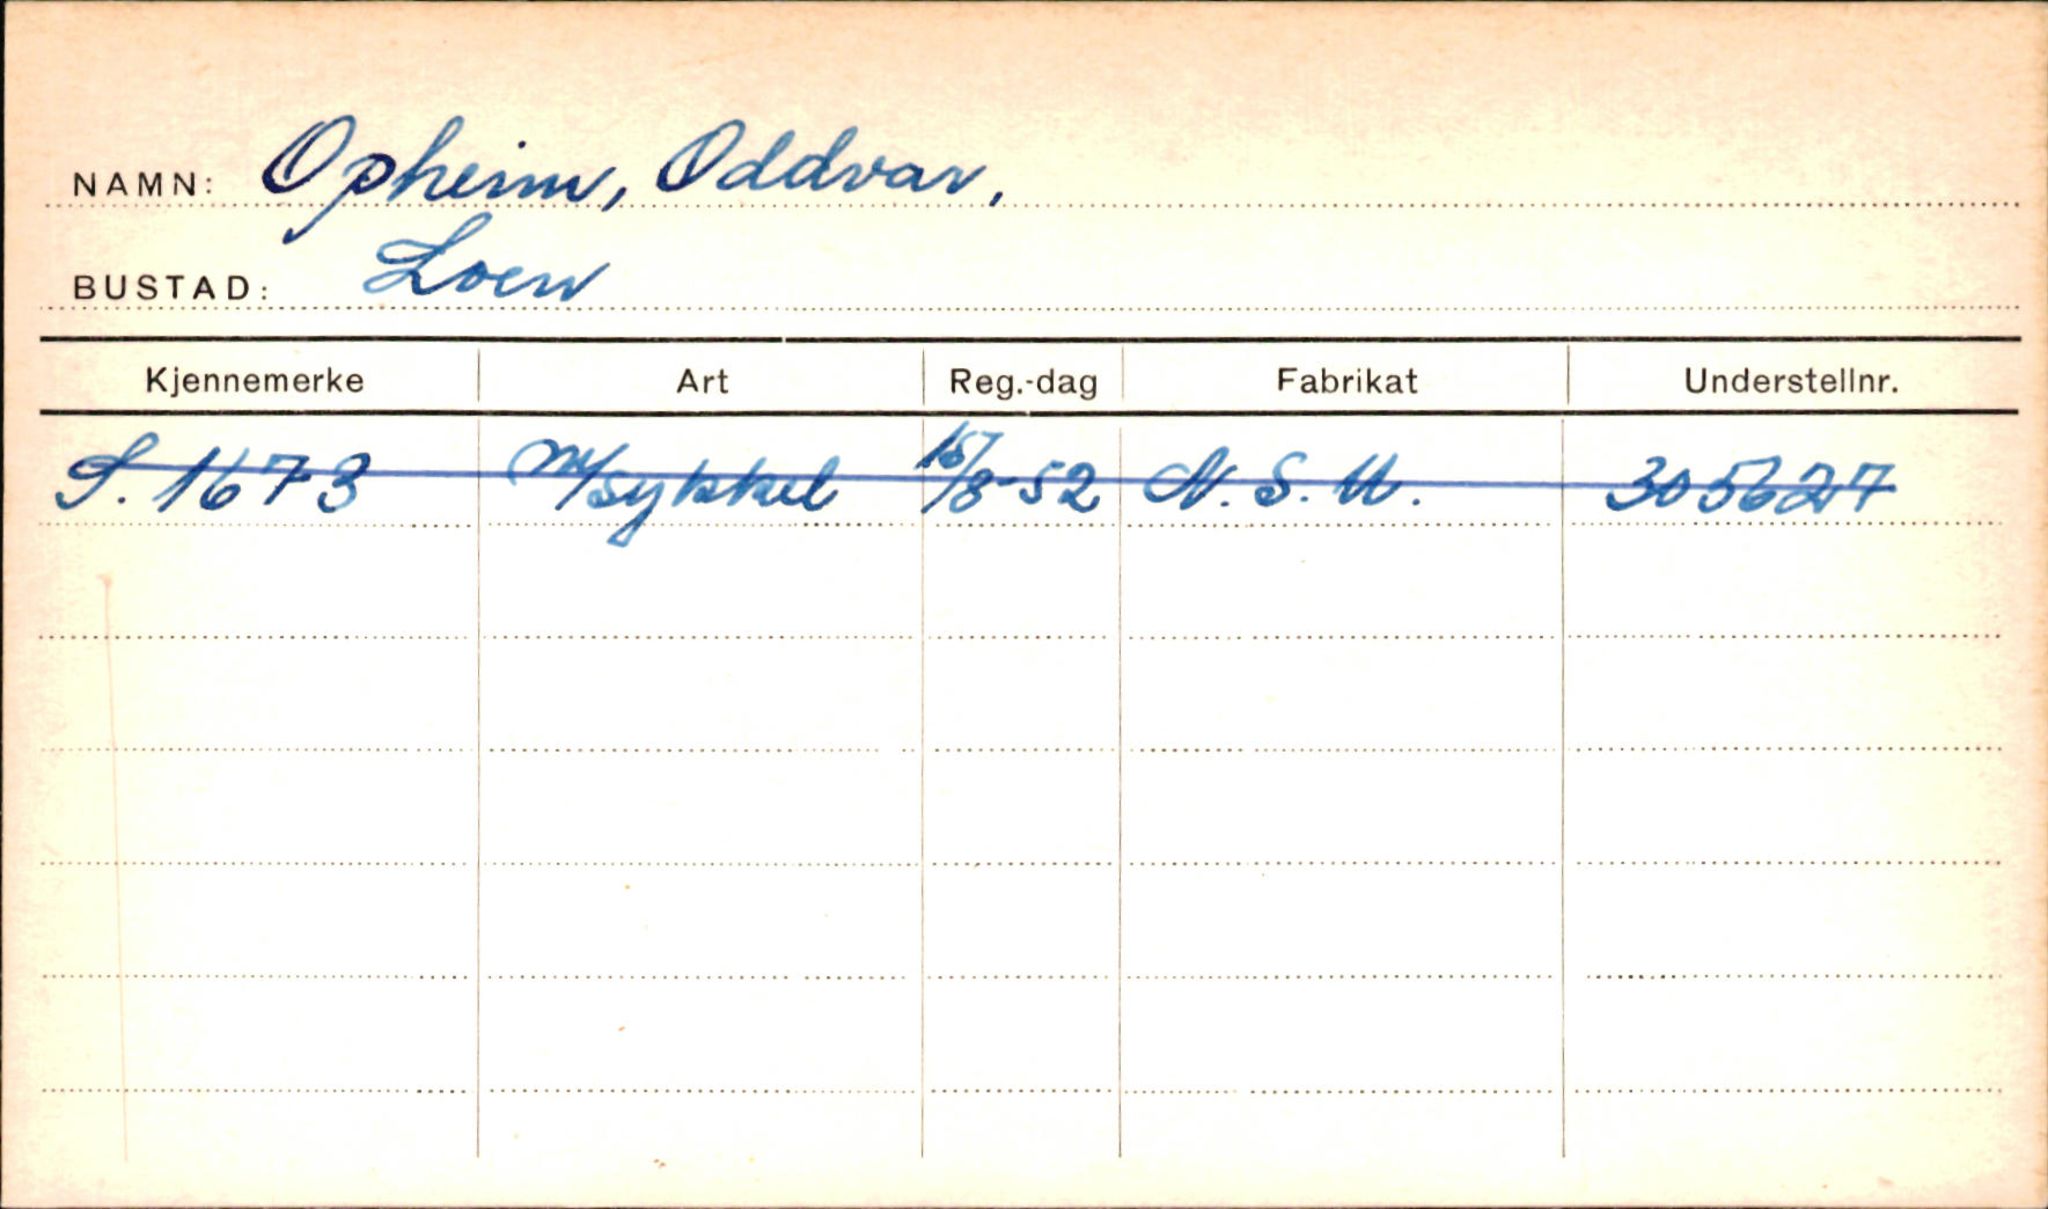 NAMN: Opheim, Oddvar,
BUSTAD: Loen
Kjennemerke Art Reg.-dag Fabrikat Understellnr.
S. 1673 M/sykkel 15/8-52 N.S.U. 305627